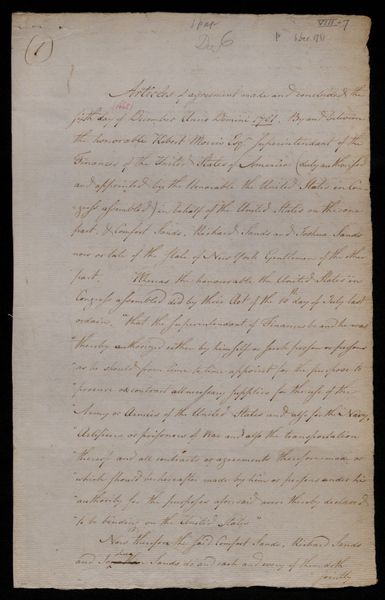 1 pap
VIII-7
Dec 6
(1)
Articles of agreement made and concluded the
sixth day of December Anno Domini 1781. By and between
the honorable Robert Morris Esqr. Superintendant of the
Finances of the United States of America (duly authorised
and appointed by the Honorable the United States in Con-
gress assembled) in behalf of the United States on the one
part, & Comfort Sands, Richard Sands and Joshua Sands
now or late of the State of New York Gentlemen of the other
part. Whereas the honourable the United States in
Congress assembled did by their Act of the 10th day of July last
ordain, "that the Superintendant of Finances be and he was
"thereby authorized either by himself or such person or persons
"as he should from time to time appoint for the purpose to
"procure or contract all necessary supplies for the use of the
"Army or Armies of the United States and also for the Navy,
"Artificers or prisoners of War and also the transportation
"thereof and all contracts or agreements therefore made or
which should be hereafter made by him or persons under his
"authority for the purposes aforesaid were thereby declared
"to be binding on the United States."
Now therefore the said Comfort Sands, Richard Sands
and Sands do and each and every of them doth
jointly